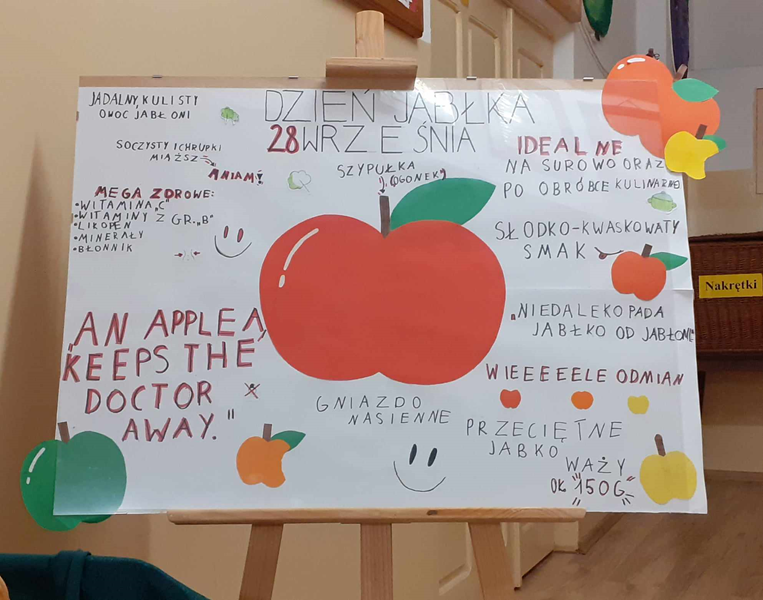 DZIEŃ JABŁKA
28 WRZEŚNIA
JADALNY, KULISTY
OWOC JABŁONI
SOCZYSTY I CHRUPKI
MIĄŻSZ
MNIAM!
MEGA ZDROWE:
•WITAMINA „C"
•WITAMINY Z GR. „B"
•LIKOPEN
•MINERAŁY
•BŁONNIK
„AN APPLE A
KEEPS THE
DOCTOR
AWAY."
SZYPUŁKA
(OGONEK)
GNIAZDO
NASIENNE
IDEALNE
NA SUROWO ORAZ
PO OBRÓBCE KULINARNEJ
SŁODKO-KWASKOWATY
SMAK
„NIEDALEKO PADA
JABŁKO OD JABŁONI"
WIEEEEELE ODMIAN
PRZECIĘTNE
JABKO
WAŻY
OK. 150G
Nakrętki